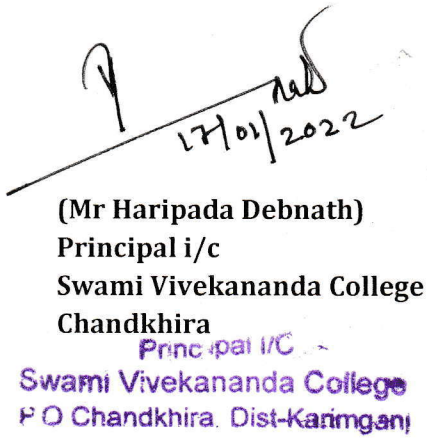 17/01/2022
(Mr Haripada Debnath)
Principal i/c
Swami Vivekananda College
Chandkhira
Principal I/C
Swami Vivekananda College
P O Chandkhira. Dist-Karimganj